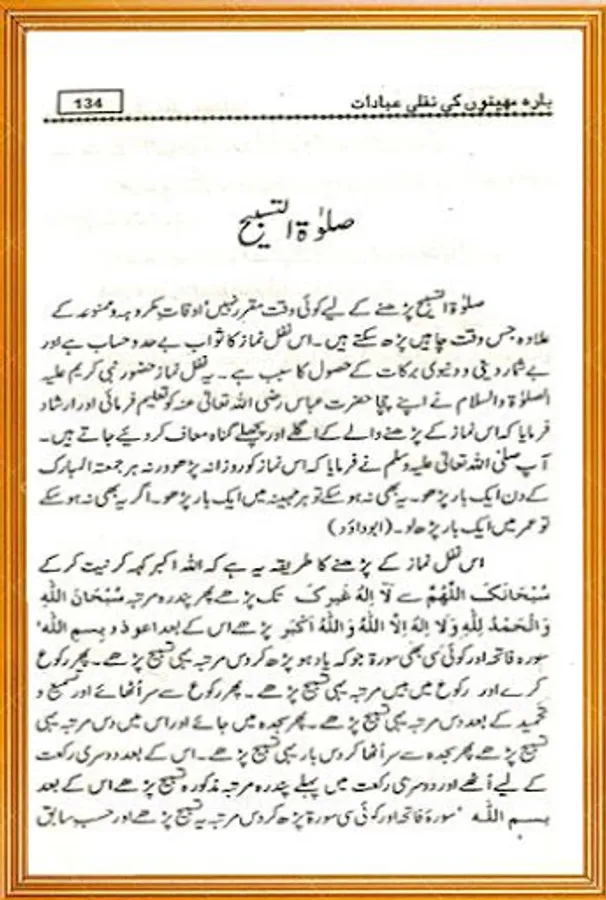 باره مهینوں کی نفلی عبادات
134
صلوٰۃ التسبیح
صلوٰۃ التسبیح پڑھنے کے لیے کوئی وقت مقرر نہیں' اوقات مکروہہ و ممنوعہ کے
علاوہ جس وقت چاہیں پڑھ سکتے ہیں۔ اس نفل نماز کا ثواب بے حد و حساب ہے اور
بے شمار دینی و دنیوی برکات کے حصول کا سبب ہے۔ یہ نفل نماز حضور نبی کریم علیہ
الصلوٰۃ والسلام نے اپنے چچا حضرت عباس رضی اللہ تعالیٰ عنہ کو تعلیم فرمائی اور ارشاد
فرمایا کہ اس نماز کے پڑھنے والے کے اگلے اور پچھلے گناہ معاف کر دیئے جاتے ہیں۔
آپ صلی اللہ تعالیٰ علیہ وسلم نے فرمایا کہ اس نماز کو روزانہ پڑھو ورنہ ہر جمعۃ المبارک
کے دن ایک بار پڑھو۔ یہ بھی نہ ہو سکے تو ہر مہینہ میں ایک بار پڑھو۔ اگر یہ بھی نہ ہو سکے
تو عمر میں ایک بار پڑھ لو۔ (ابوداؤد)
اس نفل نماز کے پڑھنے کا طریقہ یہ ہے کہ اللہ اکبر کہہ کر نیت کر کے
سُبْحَانَکَ اللّٰهُمَّ سے لَآ اِلٰهَ غَیْرِکَ تک پڑھے پھر پندرہ مرتبہ سُبْحَانَ اللّٰهِ
وَالْحَمْدُ لِلّٰهِ وَلَا اِلٰهَ اِلَّا اللّٰهُ وَاللّٰهُ اَکْبَر پڑھے اس کے بعد اعوذ و بسم اللہ'
سورہ فاتحہ اور کوئی سی بھی سورۃ جو کہ یاد ہو پڑھ کر دس مرتبہ یہی تسبیح پڑھے۔ پھر رکوع
کرے اور رکوع میں بیس مرتبہ یہی تسبیح پڑھے۔ پھر رکوع سے سر اٹھائے اور تسمیع و
تحمید کے بعد دس مرتبہ یہی تسبیح پڑھے۔ پھر سجدہ میں جائے اور اس میں دس مرتبہ یہی
تسبیح پڑھے پھر سجدہ سے سر اٹھا کر دس بار یہی تسبیح پڑھے۔ اس کے بعد دوسری رکعت
کے لیے اٹھے اور دوسری رکعت میں پہلے پندرہ مرتبہ مذکورہ تسبیح پڑھے اس کے بعد
بسم اللّٰہ' سورۃ فاتحہ اور کوئی سی سورۃ پڑھ کر دس مرتبہ یہ تسبیح پڑھے اور حسب سابق